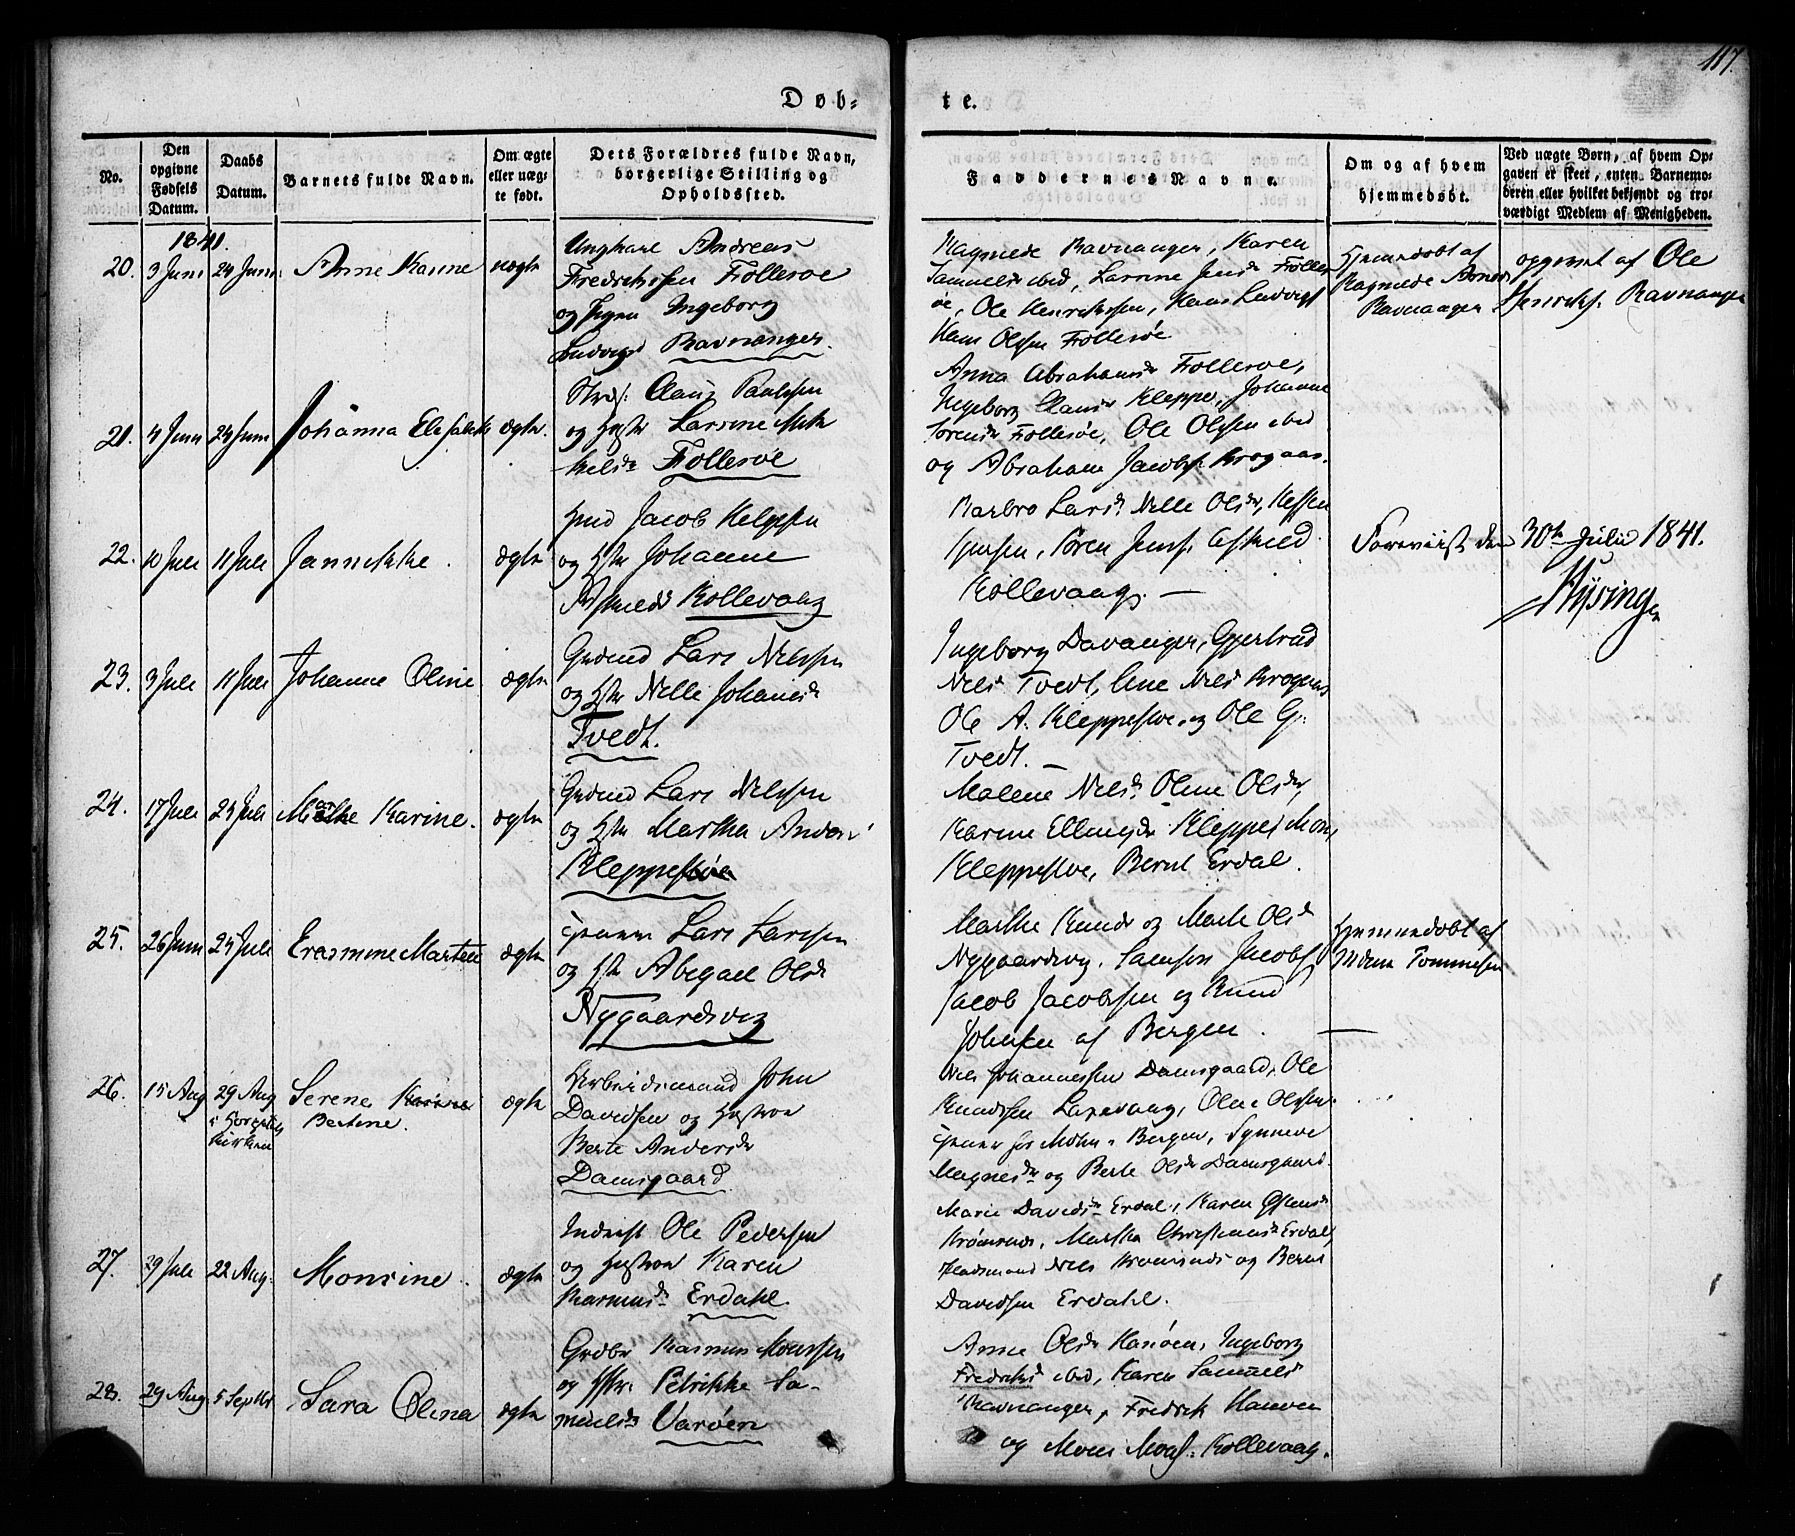 117.
Døb-
te.
No.
Den opgivne Fødsels Datum.
Daabs Datum.
Barnets fulde Navn.
Om ægte eller uægte født.
Dets Forældres fulde Navn, borgerlige Stilling og Opholdssted.
Faddernes Navne.
Om og af hvem hjemmedøbt.
Ved uægte Børn, af hvem Opgaven er skeet, enten Barnemoderen eller hvilket bekjendt og troværdigt Medlem af Menigheden.
1841.
20. 3 Juni 24 Juni Anne Karine uægte
Ungkarl Andreas
Fredriksen Follesøe
og Ingeborg
Ludvigsd Ravnanger.
Magnede Ravnanger, Karen
Samuelsd ibid, Larsine Jensd Folles
øe, Ole Henrikssen, Hans Ludvigs
Hans Olssen Follesøe
Hjemmedøbt af
Magnede
Ravnanger
opgivet af Ole
Henriks. Ravnanger
21. 4 Juni 24 Juni Johanna Elisabeth ægte.
Claus Paulssen
og Larsine Mik
kelsd Follesøe
Anna Abrahamsd Follesøe,
Ingeborg Clausd Kleppe, Johanne
Sørensd Follesøe, Ole Olssen ibid
og Abraham Jacobs. Krogaas.
22. 10 Juli 11 Juli Jannikke. ægte
Jacob
og Hstr Johanne
Kollevaag
Barbro Larsd Nille Olsd,
Jensen, Søren Jens.
Kollevaag. —
Foreviist den 30te Julii 1841.
Hysing
23. 3 Juli 11 Juli Johanne Oline ægte
Grdmd Lars Nilssen
og Hstr Nille Johannesd
Tvedt.
Ingeborg Davanger, Gjertrud
Nilsd Tvedt, Ane Nilsd Krogaas
Ole A. Kleppestøe og Ole G.
Tvedt. —
24. 17 Juli 25 Juli Marthe Karine. ægte
Grdmd Lars Nilssen
og Hstr Martha Anders
Kleppestøe
Malene Nilsd Oline Olsd,
Karine Ellingsd Kleppe, Mons
Kleppestøe, Bernt Erdal.
25. 26 Juni 25 Juli Erasmine Martea ægte
Lars Larssen
og Hstr Abigael Olsd
Nygaardsvig
Marthe Knuds og Marte Olsd
Nygaardsvig. Samson Jacobs.
Jacob Jacobssen og Knud
Johnsen af Bergen. —
Hjemmedøbt af
Tommesen
26. 15 Aug 29 Aug
i Kors
kirken
Serene Karine
Bertine.
ægte
Arbeidsmand John
Davidsen og Hustroe
Berte Andersd
Damsgaard
Nils Johannessen Damsgaard, Ole
Knudssen Laxevaag, Oline Olssen
Mohn i Bergen, Synneve
Magnesd og Berte Olsd Damsgaard.
27. 29 Juli 22 Aug. Monsine. ægte
Inderst Ole Pedersen
og Hustroe Karen
Rasmusd Erdahl.
Marie Davidsd Erdal, Karen
Kromsnes, Martha Christiansd Erdal
Pladsmand Nils Kromsnes og Bernt
Davidsen Erdahl.
28. 29 Aug. 5 Septbr Sara Olina ægte
Grdbr Rasmus Monssen
og Hstr. Petrikke Sa-
muelsd Varøen
Anne Olsd Hanøen, Ingeborg
Fredriksd ibid, Karen Samuelsd
Ravnanger, Fredrik Hanøen
og Mons Kollevaag.